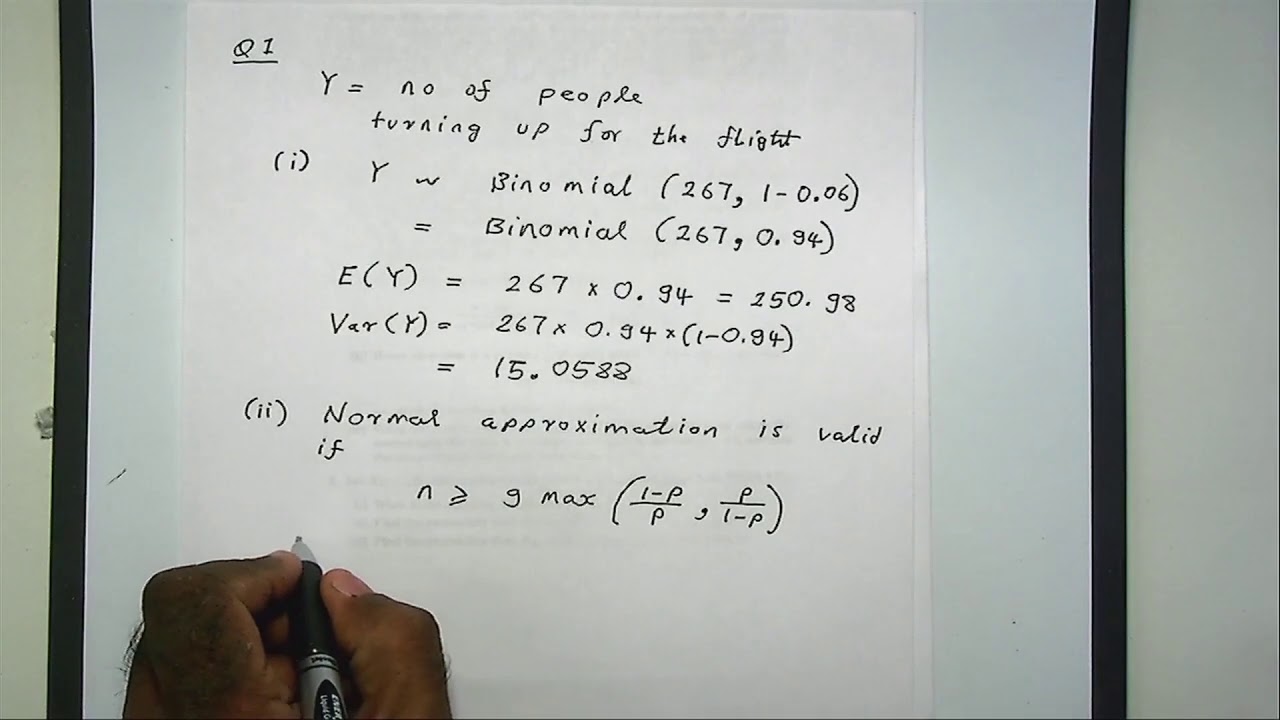 Q1
Y = no of people
turning up for the flight
(i) Y ~ Binomial (267, 1-0.06)
= Binomial (267, 0.94)
E(Y) = 267 × 0.94 = 250.98
Var(Y) = 267 × 0.94 × (1-0.94)
= 15.0588
(ii) Normal approximation is valid
if
n ≥ 9 max (1-p/p, p/1-p)